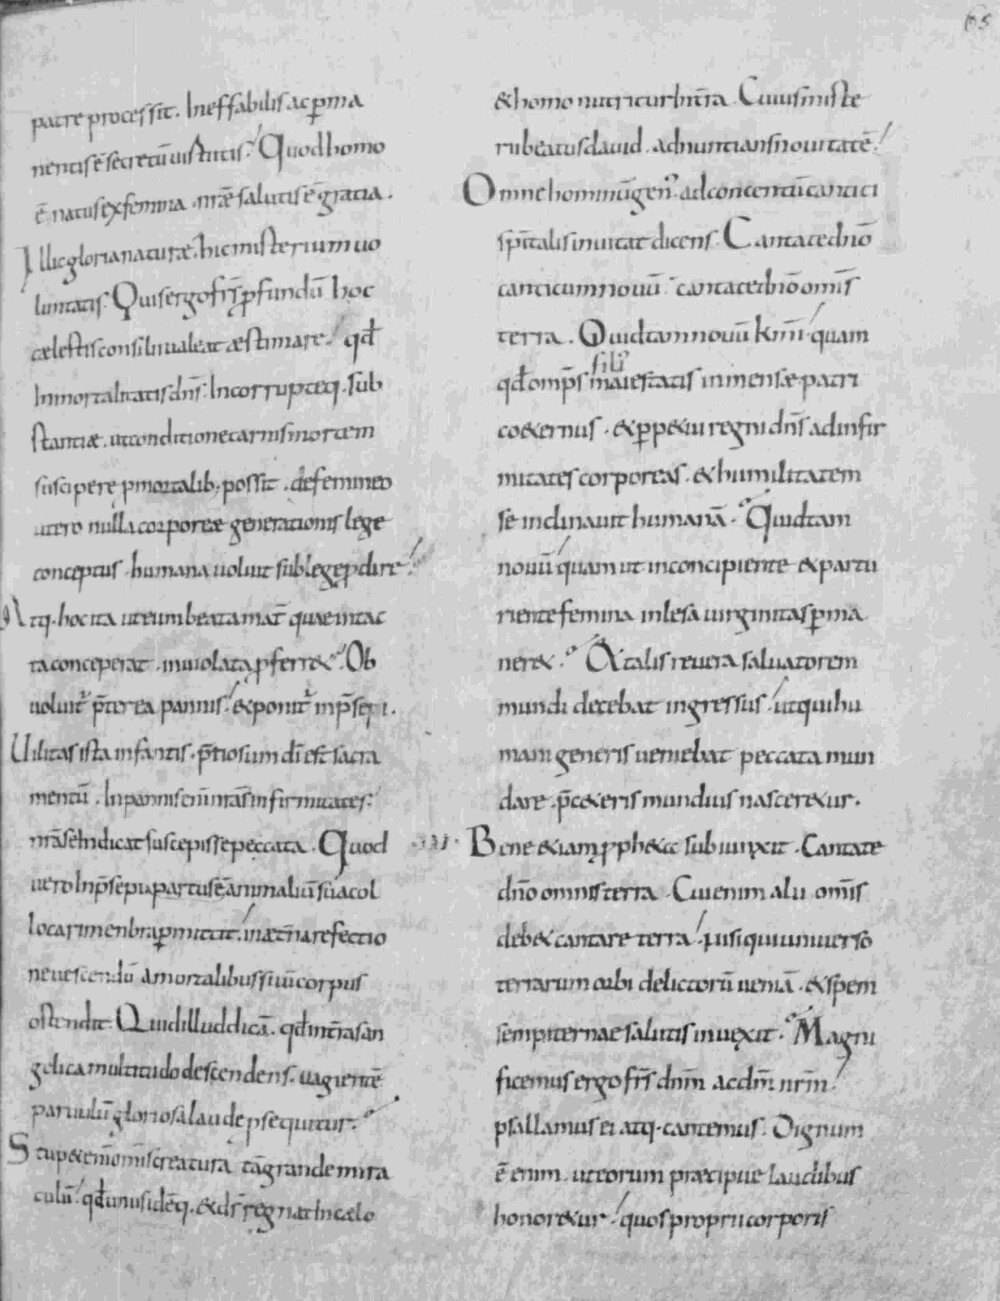 65
patre processit. Ineffabilis ac ꝑma
nentis ē secretū uirtutis. Quod homo
ē natus ex femina. nr̄ae salutis ē gratia.
Illic gloria naturae. hic misterium uo
luntatis. Quis ergo fr̄s ꝓfundū hoc
caelestis consilii ualeat aestimare. qd̄
Inmortalitatis dn̄s. Incorrupteq. sub
stantiae. ut conditione carnis mortem
suscipere ꝓ mortalib; possit. de femineo
utero nulla corporeae generationis lege
conceptus. humana uoluit sub lege ꝓdire.
Atq. hoc ita ut eum beata mat̄ quae intac
ta conceperat. inuiolata ꝓferret. Ob
uoluit̄ p̄terea pannis. & ponit̄ in p̄sepi.
Uilitas ista infantis. p̄tiosum dī est sacra
mentū. In pannis enī nr̄as infirmitates.
nr̄a se Indicat suscepisse peccata. Quod
uero In p̄sepi partus ē animaliū sua col
locari menbra ꝑmittit. in aet̄na refectio
ne uescendū a mortalibus suū corpus
ostendit. Quid illud dicā. qd̄ int̄ras an
gelica multitudo descendens. uagientē
paruulū gloriosa laude ꝓsequitur.
Stup& enī om̄is creatura tā grande mira
culū. qd̄ unus idēq. & ds̄ regnat In caelo
& homo nutritur In t̄ra. Cuius miste
ru beatus dauid. adnuntians nouitatē.
Omne hominū gen᾽. ad concentū cantici
sp̄italis inuitat dicens. Cantate dn̄o
canticum nouū. cantate dn̄o om̄is
terra. Quid tam nouū km̄i. quam
qd̄ omp̄s fili᾽ maiestatis inmensae patri
co&ernus. & ꝑp&ui regni dn̄s ad infir
mitates corporeas. & humilitatem
se inclinauit humanā. Quid tam
nouū quam ut in concipiente & partu
riente femina inlesa uirginitas ꝑma
ner&. At talis reuera saluatorem
mundi decebat ingressus. ut qui hu
mani generis ueniebat peccata mun
dare. p̄ ceteris mundius nascer&ur.
Bene & iam ꝓph&ae subiunxit. Cantate
dn̄o omnis terra. Cui enim alii om̄is
deb& cantare terra. nisi qui uniuerso
terrarum orbi delictorū ueniā. & spem
sempiternae salutis inuexit. Magni
ficemus ergo fr̄s dn̄m ac dm̄ nr̄m.
psallamus ei atq. cantemus. Dignum
ē enim. ut eorum praecipue laudibus
honor&ur. quos proprii corporis